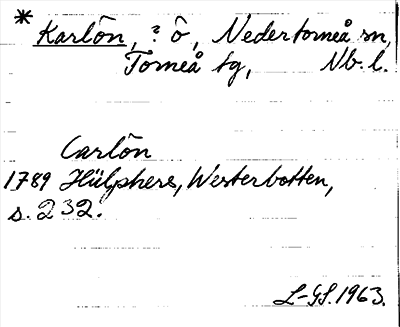 * Karlön, ? ö, Nedertorneå sn,
Torneå tg, Nb. l.
Carlön
1789 Hülphers, Westerbotten,
s. 232.
L-GS. 1963.